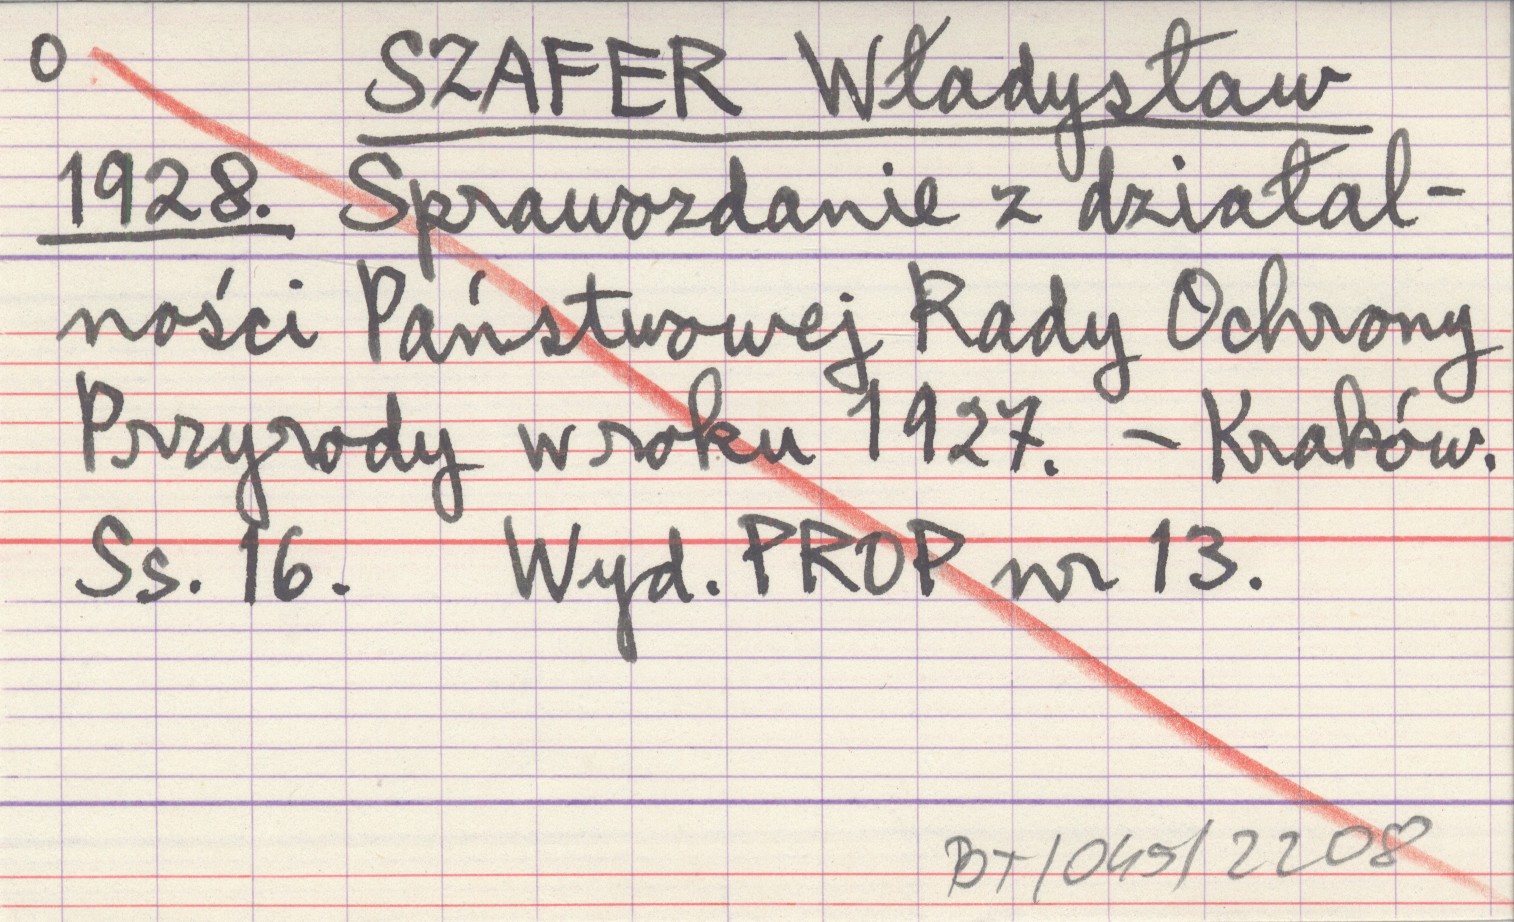 O SZAFER Władysław
1928. Sprawozdanie z działal-
ności Państwowej Rady Ochrony
Przyrody w roku 1927. - Kraków.
Ss. 16. Wyd. PROP nr 13.
BT/045/2208